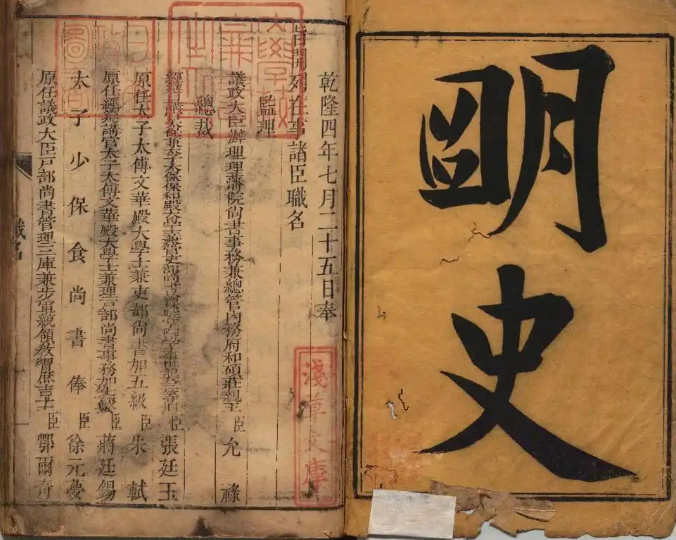 明史
乾隆四年七月二十五日奉
旨開列在事諸臣職名
監理
議政大臣辦理理藩院尚書事務兼總管內務府和碩莊親王臣允祿
總裁
經筵日講官太保兼太子太保保和殿大學士兼臣張廷玉
原任太子太傅文華殿大學士兼吏部尚書加五級臣朱軾
原任經筵講官太子太傅文華殿大學士兼理戶部尚書事務加級臣蔣廷錫
太子少保食尚書俸臣徐元夢
原任議政大臣戶部尚書管理三庫兼步軍統領教習庶吉士臣鄂爾奇
職名
淺草文庫